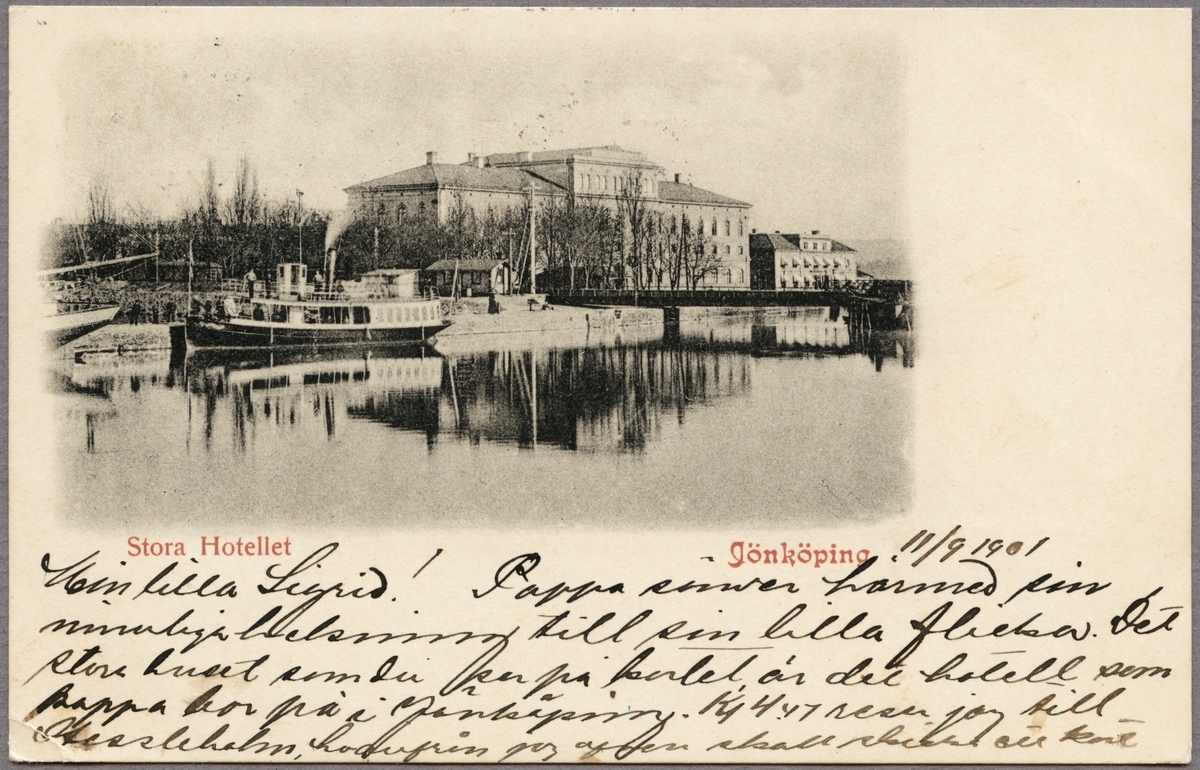 Stora Hotellet
Jönköping
11/9 1901
Min lilla Sigrid! Pappa sänder härmed sin
innerliga helsning till sin lilla flicka. Det
stora huset som du ser på kortet är det hotell som
pappa bor på i Jönköping. Kl 4.47 reser jag till
Hessleholm, hvarifrån jag afven skall skicka ett kort